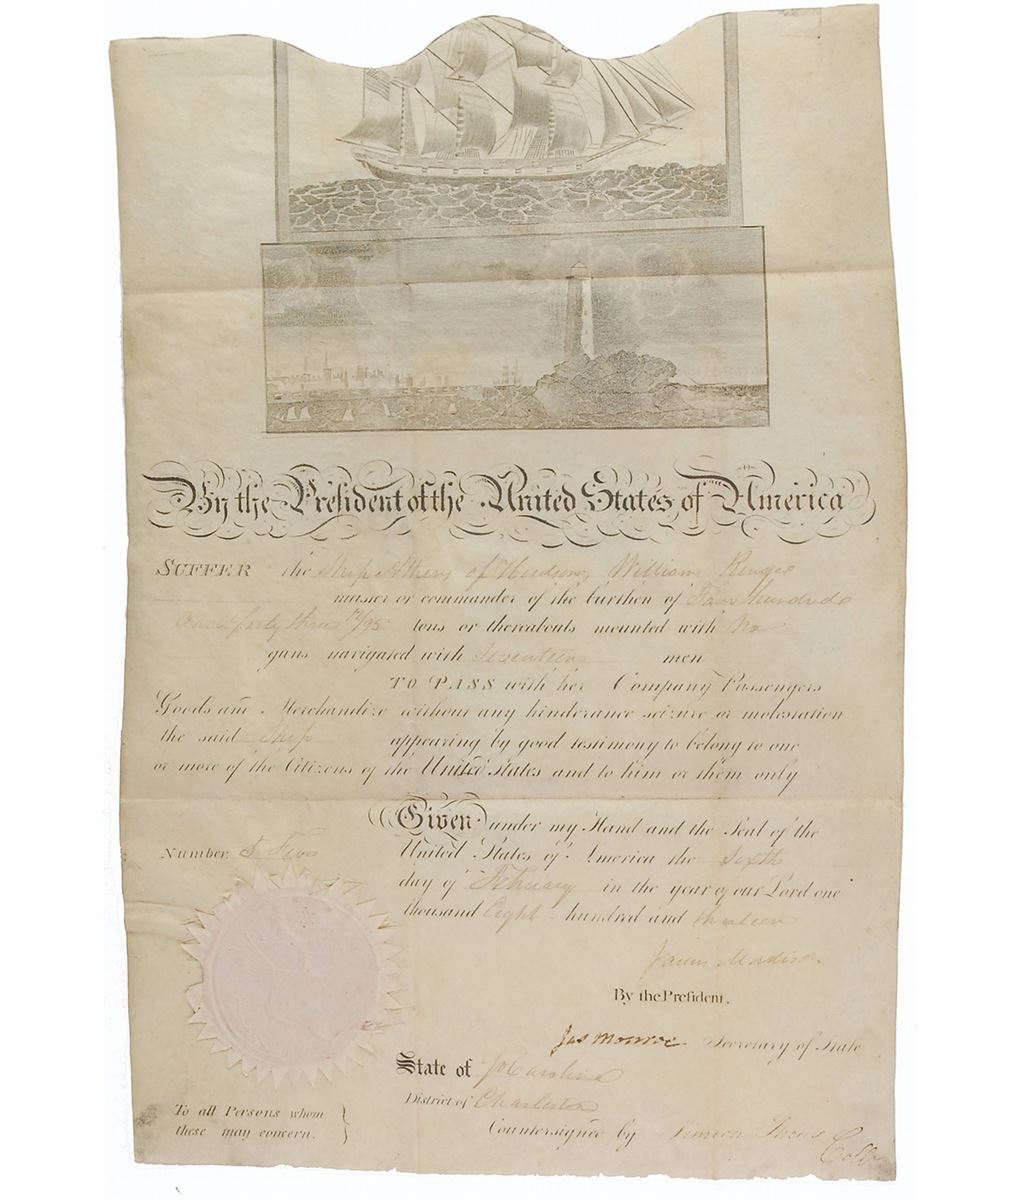 By the President of the United States of America
SUFFER the Ship Athens of Hudson, William
master or commander of the burthen of Four hundred
and forty three 12/95 tons or thereabouts mounted with No
guns navigated with Seventeen men
TO PASS with her Company Passengers
Goods and Merchandize without any hinderance seizure or molestation
the said Ship appearing by good testimony to belong to one
or more of the Citizens of the United States and to him or them only
Given under my Hand and the Seal of the
United States of America the Sixth
Number. 5 Five
day of February in the year of our Lord one
thousand Eight hundred and thirteen
James Madison
By the President,
Jas Monroe Secretary of State
State of So Carolina
District of Charleston
To all Persons whom
these may concern.
Countersigned by Simeon Theus
Collr